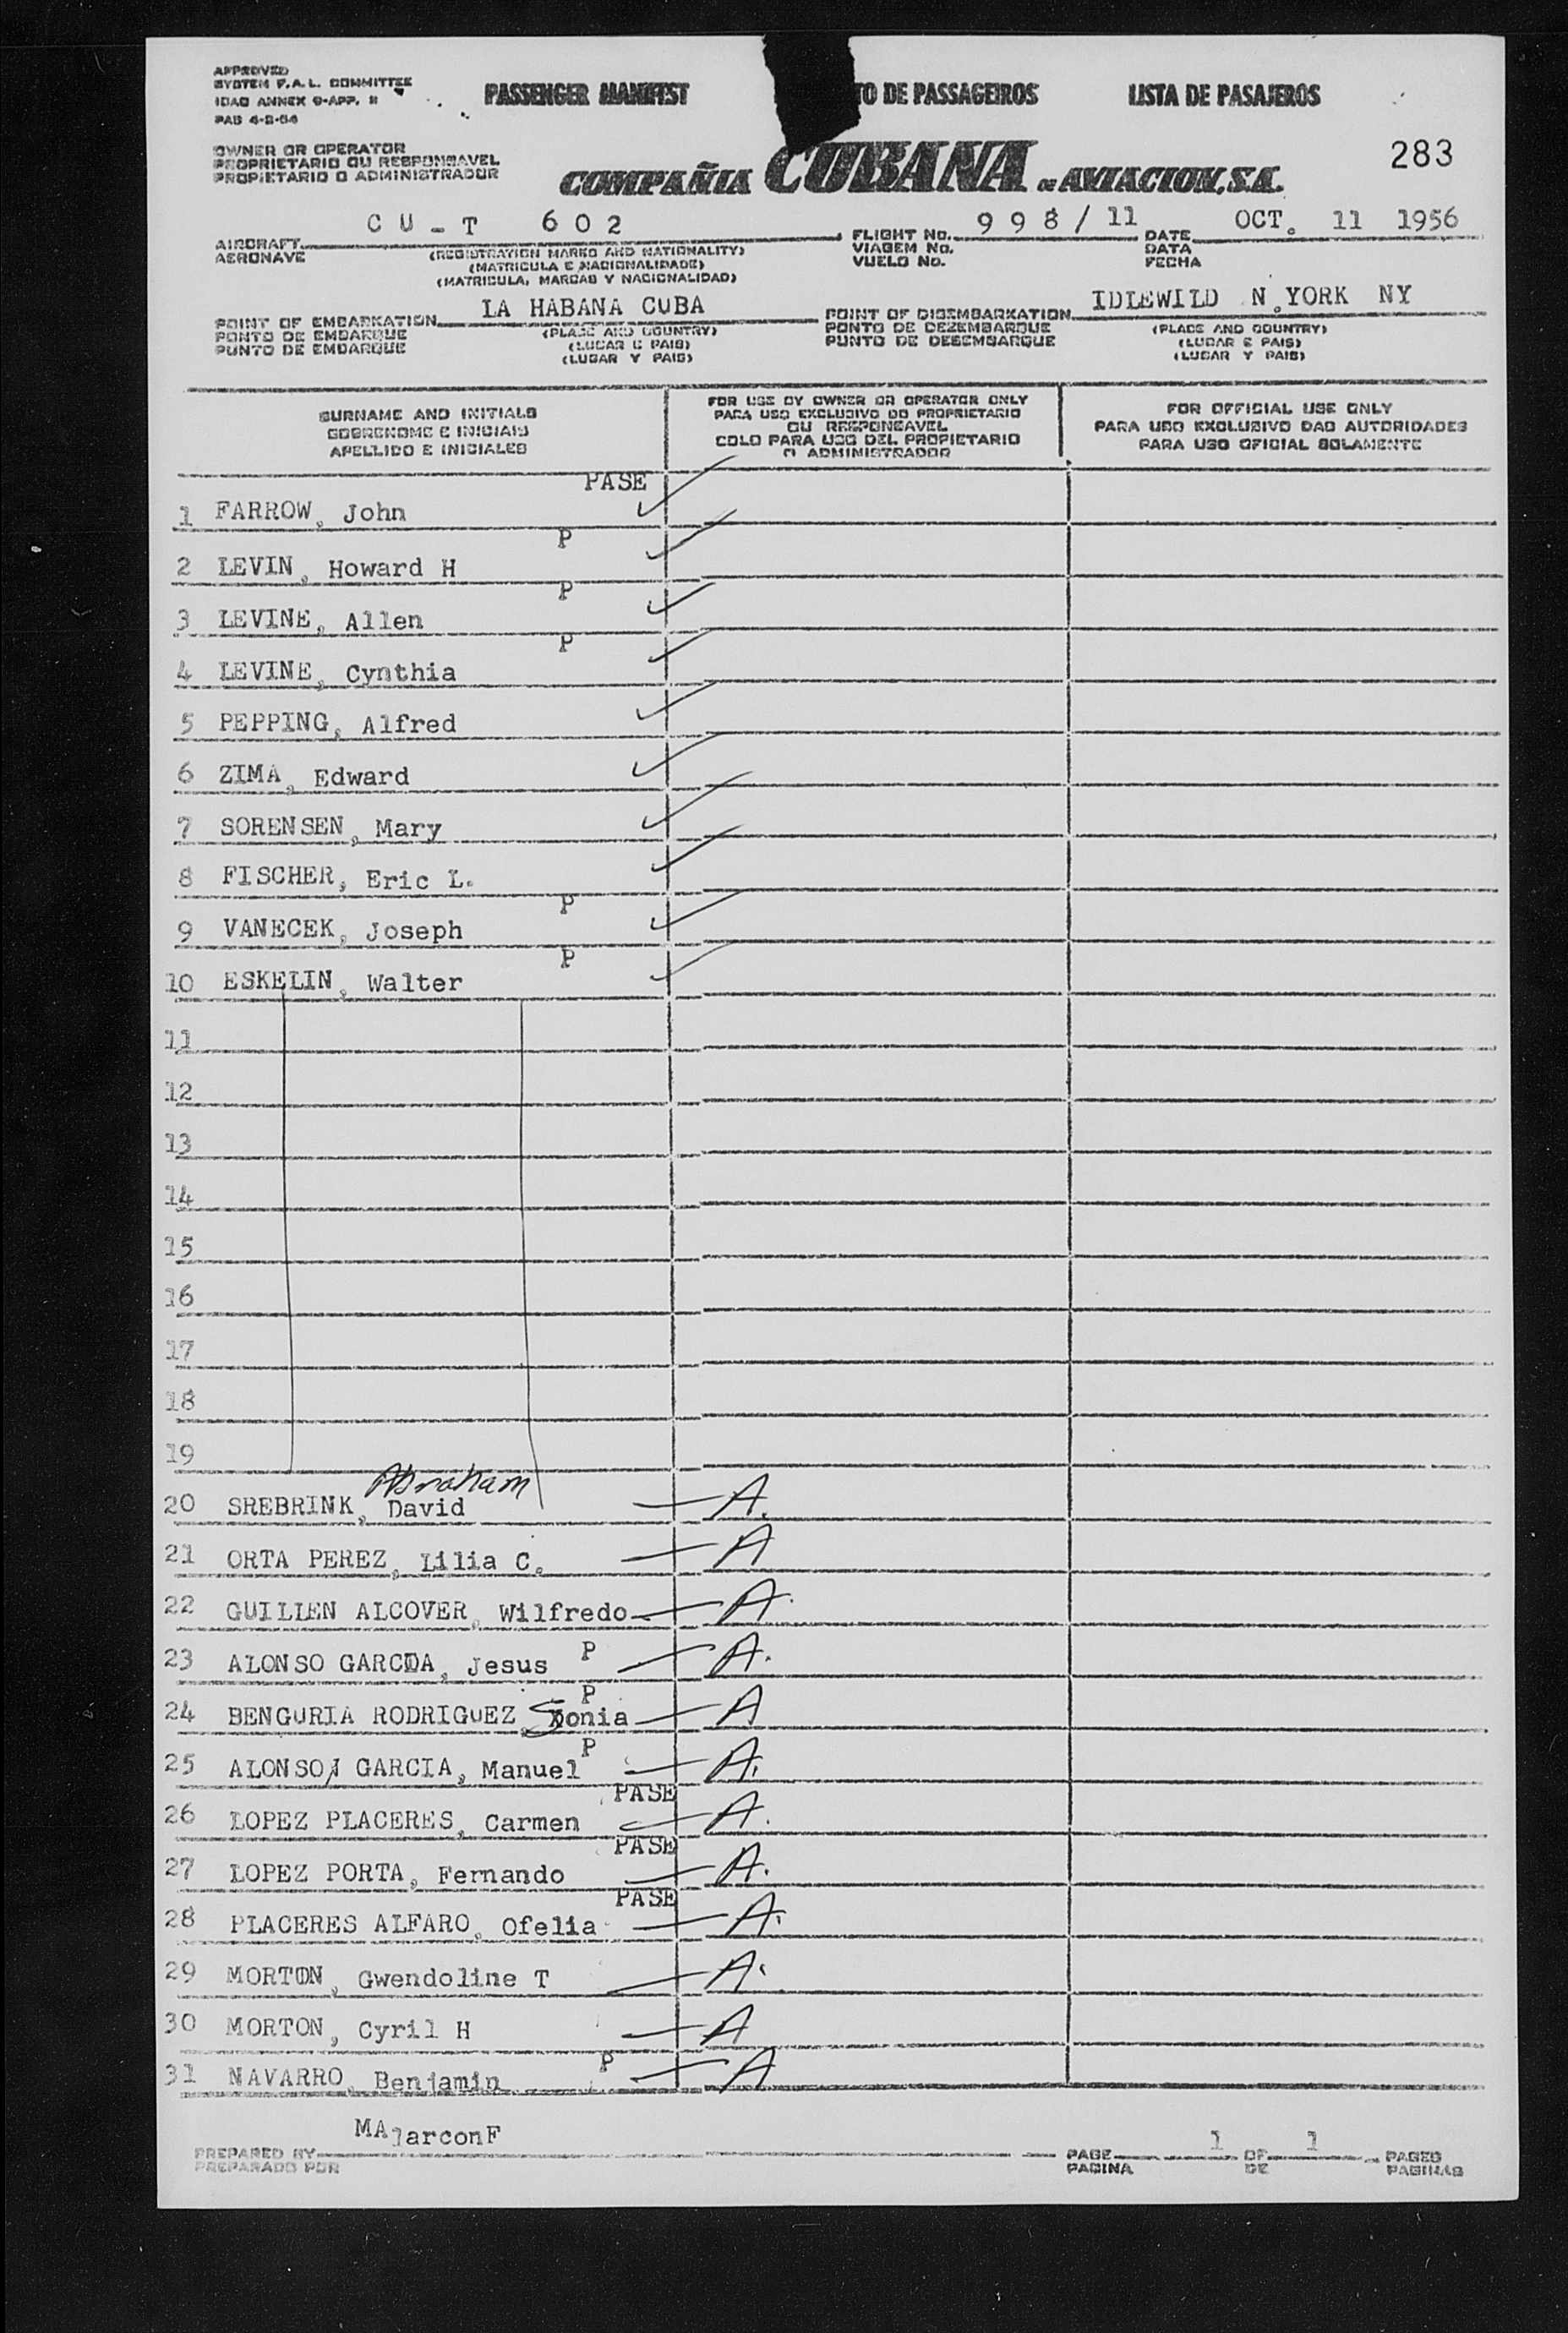 APPROVED
SYSTEM F.A.L. COMMITTEE
ICAO ANNEX 9-APP. II
PAB 4-2-54
PASSENGER MANIFEST TO DE PASSAGEIROS LISTA DE PASAJEROS
OWNER OR OPERATOR
PROPRIETARIO OU RESPONSAVEL
PROPIETARIO O ADMINISTRADOR
COMPAÑIA CUBANA DE AVIACION, S.A.
283
CU-T 602 998/11 OCT. 11 1956
AIRCRAFT FLIGHT No. DATE
AERONAVE (REGISTRATION MARKS AND NATIONALITY) VIAGEM No. DATA
(MATRICULA E NACIONALIDADE) VUELO No. FECHA
(MATRICULA, MARCAS Y NACIONALIDAD)
LA HABANA CUBA IDLEWILD N.YORK NY
POINT OF EMBARKATION (PLACE AND COUNTRY) POINT OF DISEMBARKATION (PLACE AND COUNTRY)
PONTO DE EMBARQUE (LUGAR E PAIS) PONTO DE DEZEMBARQUE (LUGAR E PAIS)
PUNTO DE EMBARQUE (LUGAR Y PAIS) PUNTO DE DESEMBARQUE (LUGAR Y PAIS)
SURNAME AND INITIALS
SOBRENOME E INICIAIS
APELLIDO E INICIALES
FOR USE BY OWNER OR OPERATOR ONLY
PARA USO EXCLUSIVO DO PROPRIETARIO
OU RESPONSAVEL
SOLO PARA USO DEL PROPIETARIO
O ADMINISTRADOR
FOR OFFICIAL USE ONLY
PARA USO EXCLUSIVO DAS AUTORIDADES
PARA USO OFICIAL SOLAMENTE
PASE
1 FARROW, John
P
2 LEVIN, Howard H
P
3 LEVINE, Allen
P
4 LEVINE, Cynthia
5 PEPPING, Alfred
6 ZIMA, Edward
7 SORENSEN, Mary
8 FISCHER, Eric L.
P
9 VANECEK, Joseph
P
10 ESKELIN, Walter
11
12
13
14
15
16
17
18
19
Abraham
20 SREBRINK, David A.
21 ORTA PEREZ, Lilia C. A
22 GUILLEN ALCOVER, Wilfredo A.
23 ALONSO GARCIA, Jesus P A.
P
24 BENGURIA RODRIGUEZ, Sonia A
P
25 ALONSO GARCIA, Manuel A.
PASE
26 LOPEZ PLACERES, Carmen A.
PASE
27 LOPEZ PORTA, Fernando A.
PASE
28 PLACERES ALFARO, Ofelia A.
29 MORTON, Gwendoline T A.
30 MORTON, Cyril H A
P
31 NAVARRO, Benjamin A
MAlarconF 1 1
PREPARED BY PAGE OF PAGES
PREPARADO POR PAGINA DE PAGINAS